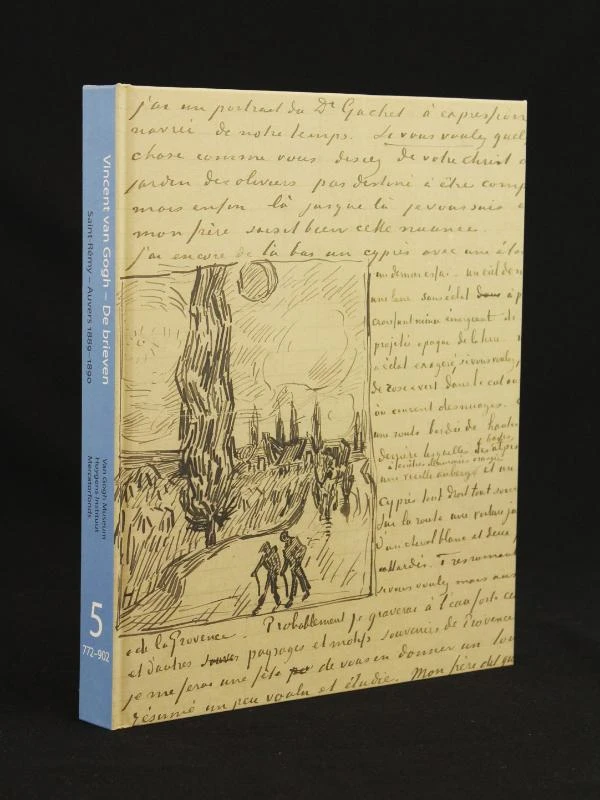 Vincent van Gogh – De brieven
Saint-Rémy – Auvers 1889–1890
Van Gogh Museum
Huygens Instituut
Mercatorfonds
5
772–902
j'ai un portrait du Dr Gachet à expression
navrée de notre temps. Si vous voulez quel
chose comme vous disiez de votre Christ a
jardin des oliviers pas destiné à être comp
mais enfin là jusque là je vous suis e
mon frère saisit bien cette nuance.
j'ai encore de là bas un cyprès avec une étoi
un dernier essai - un ciel de n
une lune sans éclat dans à p
croissant mince émergeant de
projetée opaque de la terre
à éclat exagéré, si vous voulez,
de rose et vert dans le ciel ou
où courent des nuages. 
une route bordée de hautes
derrière lesquelles les basses alpes
à fenêtres illuminées orangé
une vieille auberge et un
cyprès tout droit tout som
Sur la route une voiture ja
d'un cheval blanc et deux
attardés. Très roman
si vous voulez mais aus
de la Provence. Probablement je graverai à l'eau forte ce
et d'autres paysages et motifs souvenirs de Provence
je me ferai une fête de vous en donner un tou
résumé un peu voulu et étudié. Mon frère dit qu